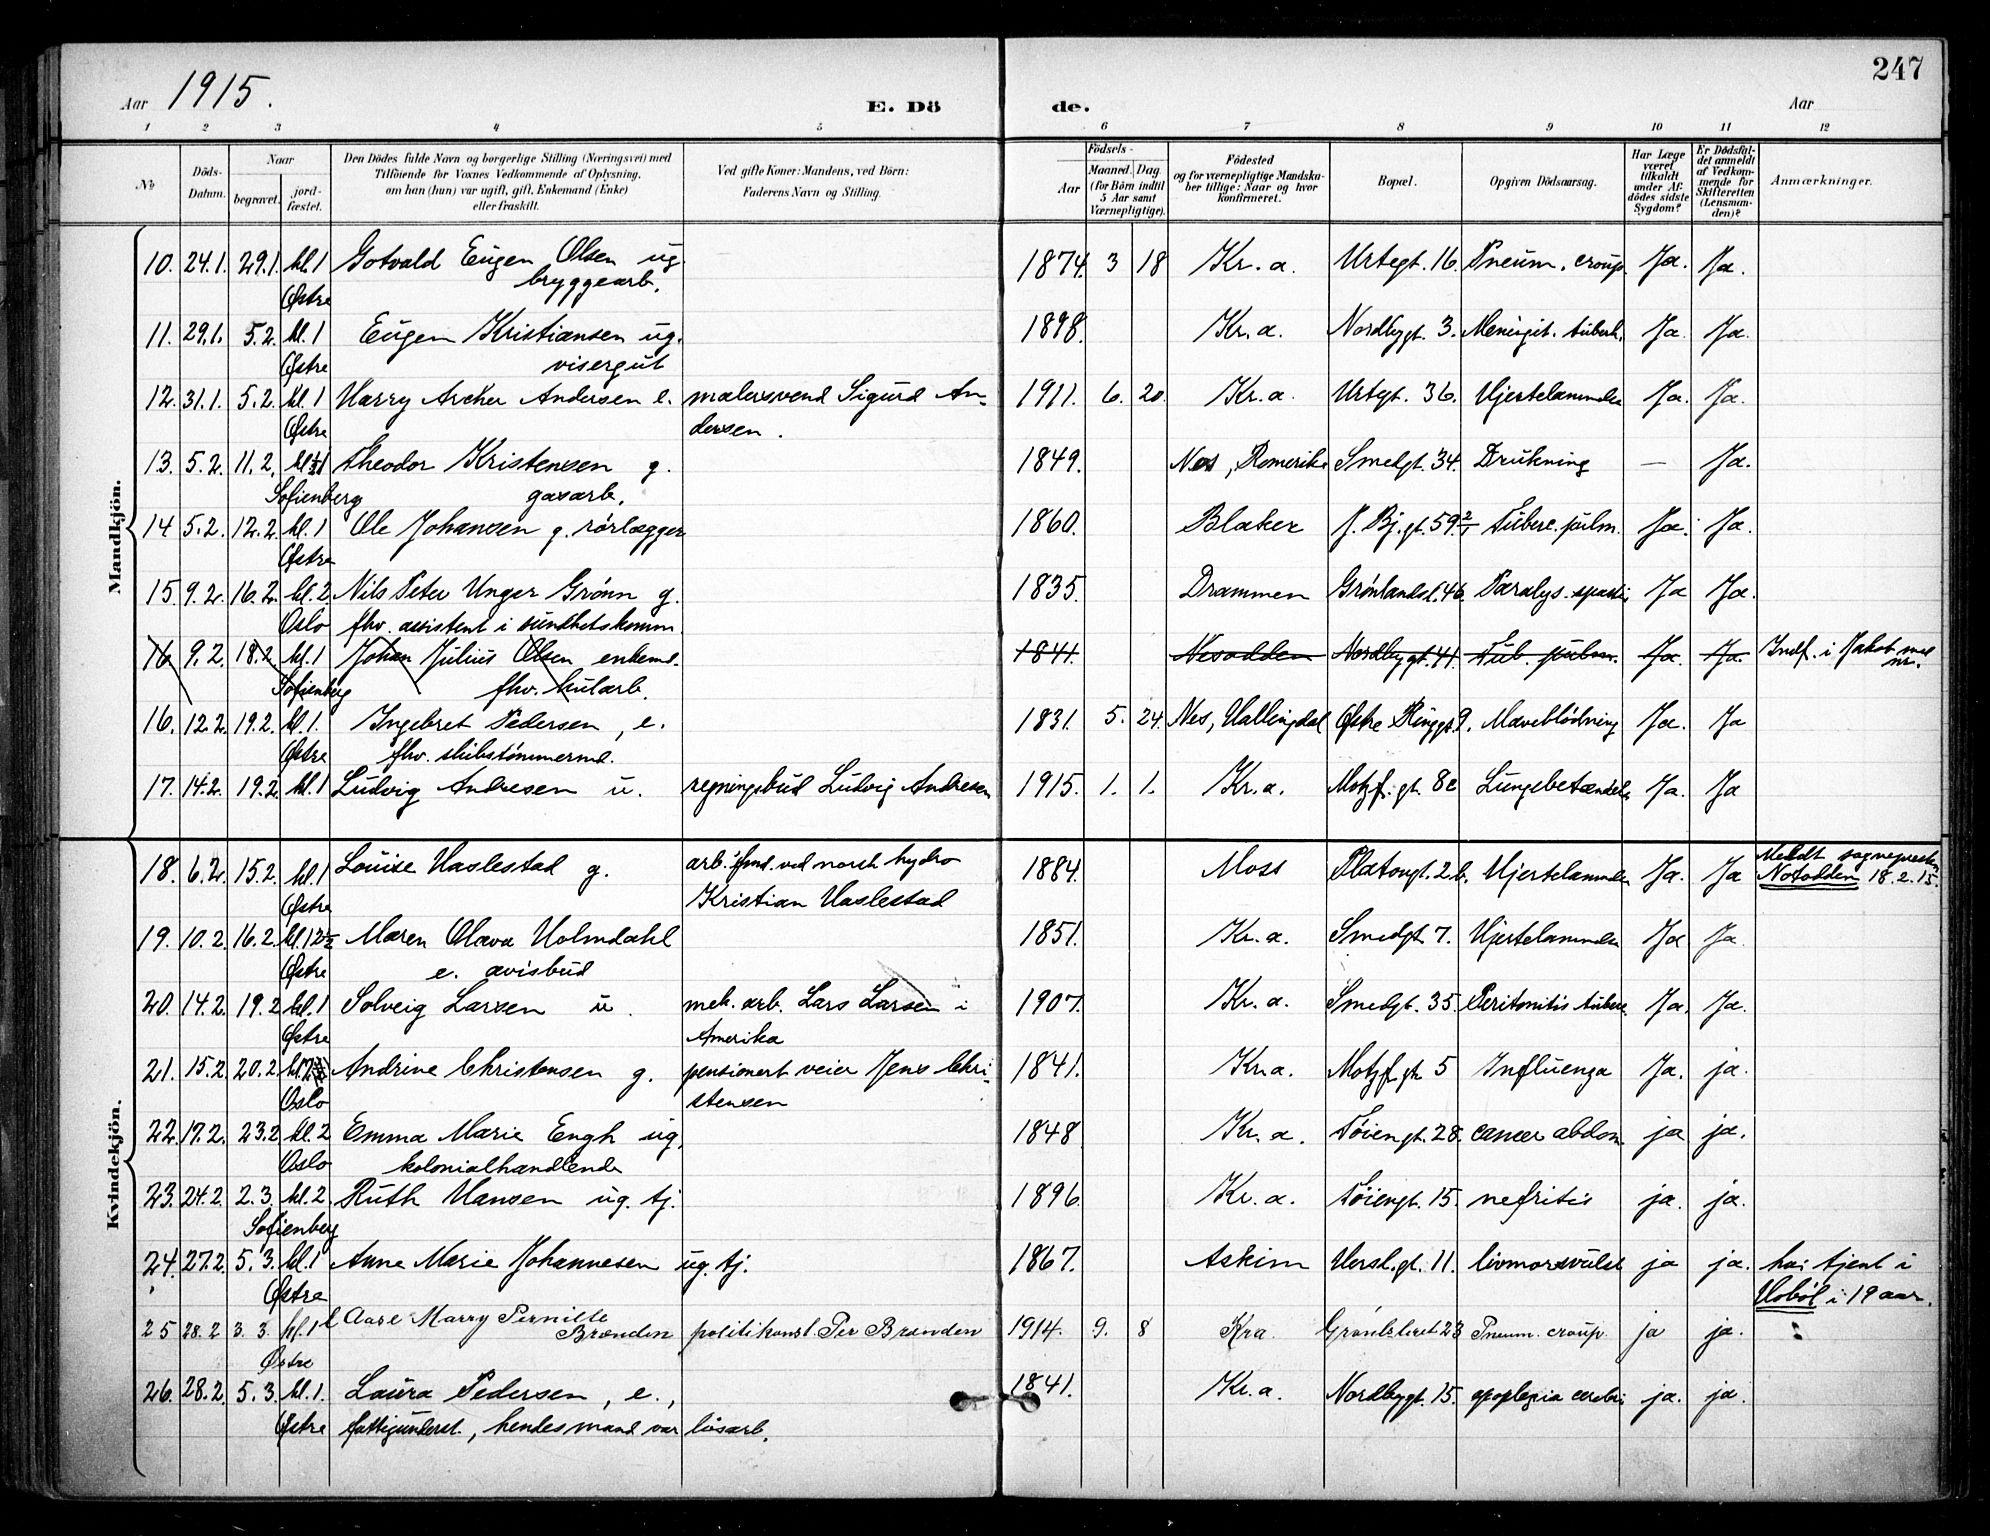 247
Aar 1915. E. Dö de. Aar
1 2 3 4 5 6 7 8 9 10 11 12
No Döds-Datum. Naar begravet. jordfæstet. Den Dödes fulde Navn og borgerlige Stilling (Næringsvei) med Tilföiende for Voxnes Vedkommende af Oplysning, om han (hun) var ugift, gift, Enkemand (Enke) eller fraskilt. Ved gifte Koner: Mandens, ved Börn: Faderens Navn og Stilling. Födsels- Aar Maaned. Dag. (for Börn indtil 5 Aar samt Værnepligtige). Födested og for værnepligtige Mandskaber tillige: Naar og hvor konfirmeret. Bopæl. Opgiven Dödsaarsag. Har Læge været tilkaldt under Afdödes sidste Sygdom? Er Dödsfaldet anmeldt af Vedkommende for Skifteretten (Lensmanden)? Anmærkninger.
Mandkjön.
10. 24.1. 29.1. kl.1 Gotvald Eugen Olsen ug. 1874. 3 18 Kr.a. Urtegt. 16. Pneum. croup. Ja. Ja.
Østre bryggearb.
11. 29.1. 5.2. kl.1 Eugen Kristiansen ug. 1898. Kr.a. Nordbygt. 3. Meningit. tuberk. Ja. Ja.
Østre visergut
12. 31.1. 5.2. kl.1 Harry Archer Andersen e. malersvend Sigurd An- 1911. 6. 20. Kr.a. Urtegt. 36. Hjertelammelse Ja. Ja.
Østre dersen.
13. 5.2. 11.2. Theodor Kristensen g. 1849. Nes, Romerike Smedgt. 34. Drukning — Ja.
Sofienberg gasarb.
14 5.2. 12.2. kl.1 Ole Johansen g. rørlægger 1860. Blaker J. Bj.gt. 59. 2/1 Tuberc. pulm. Ja. Ja.
Østre
15. 9.2. 16.2. kl.2. Nils Peter Unger Grønn g. 1835. Drammen Grønlandsl. 46. Paralys. spastic Ja Ja.
Oslo fhv. assistent i sundhetskomm.
16 9.2. 18.2. kl.1 Johan Julius Olsen enkem. 1841. Nesodden Nordbygt. 41. Tub. pulm. Ja. Ja. Indf. i Jakob med
Sofienberg fhv. kularb. nr.
16. 12.2. 19.2. kl.1. Ingebret Pedersen, e. 1831. 5. 24. Nes, Hallingdal Østre Ringgt. 9. Maveblødning Ja. Ja
Østre fhv. skibstømmerm.
17. 14.2. 19.2. kl.1 Ludvig Andresen u. regningsbud Ludvig Andresen 1915. 1. 1. Kr.a. Motzf.gt. 8c Lungebetændelse Ja. Ja
Kvindekjön.
18. 6.2. 15.2. kl.1 Louise Haslestad g. arb.fmd. ved norsk hydro 1884. Moss Platougt. 2b. Hjertelammelse Ja. Ja Meldt sognepresten
Østre Kristian Haslestad Notodden 18.2.15.
19. 10.2. 16.2. kl.12½ Maren Olava Holmdahl 1851. Kr.a. Smedgt. 7. Hjertelammelse Ja Ja.
Østre e. avisbud
20. 14.2. 19.2 kl.1 Solveig Larsen u. mek. arb. Lars Larsen i 1907. Kr.a. Smedgt. 35. Peritonitis tuberc. Ja. Ja.
Østre Amerika
21. 15.2. 20.2. Andrine Christensen g. pensionert veier Jens Chri- 1841. Kr.a. Motzf.gt. 5 Influenza Ja. ja.
Oslo stensen
22. 17.2. 23.2 kl.2 Emma Marie Engh ug. 1848 Kr.a. Tøiengt. 28. cancer abdom. ja ja.
Oslo kolonialhandlende
23. 24.2. 2.3. kl.2 Ruth Hansen ug. tj. 1896. Kr.a. Tøiengt. 15. nefritis ja. ja.
Sofienberg
24. 27.2. 5.3. kl.1 Anne Marie Johannesen ug. tj. 1867. Askim Hersl.gt. 11. livmorsvulst ja ja. har tjent i
Østre Hobøl i 19 aar.
25 28.2 3.3. kl.1 Aase Marry Pernille
Brænden politikonst. Per Brænden 1914. 9. 8 Kra. Grønlsleret 23 Pneum. croup. ja ja.
Østre
26. 28.2. 5.3. kl.1. Laura Pedersen, e., 1841. Kr.a. Nordbygt. 15. apoplexia cerebri ja. ja.
Østre fattigunderst., hendes mand var løsarb.